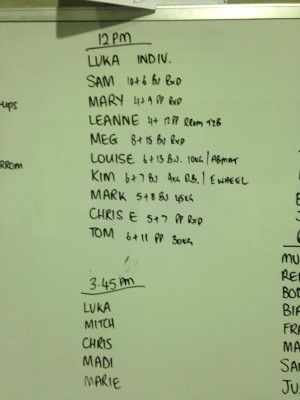 12PM
LUKA INDIV.
SAM 10+6 BU RXD
MARY 4+9 PP RXD
LEANNE 4+ 12 PP RROM
MEG 8+15 BU RXD
LOUISE 6+13 B.U. 10KG/ABMAT
KIM 6+7 BU 4KG D.B./EWHEEL
MARK 5+8 BU 45KG
CHRIS E 5+7 PP RXD
TOM 6+11 PP 30KG
3.45PM
LUKA
MITCH
CHRIS
MADI
MARIE
-UPS
RROM
MU
BIA
FRA
MA
SA
JU